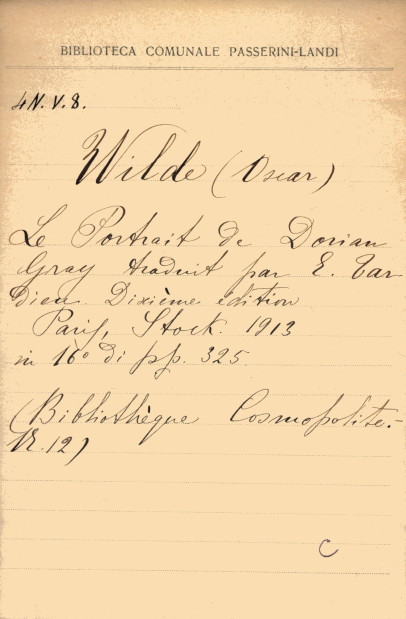 BIBLIOTECA COMUNALE PASSERINI-LANDI
4N.V.8.
Wilde (Oscar)
Le Portrait de Dorian
Gray traduit par E. Tar
dieu. Dixième édition
Paris, Stock. 1913
in 16° di pp. 325.
(Bibliothèque Cosmopolite.-
N. 12)
C